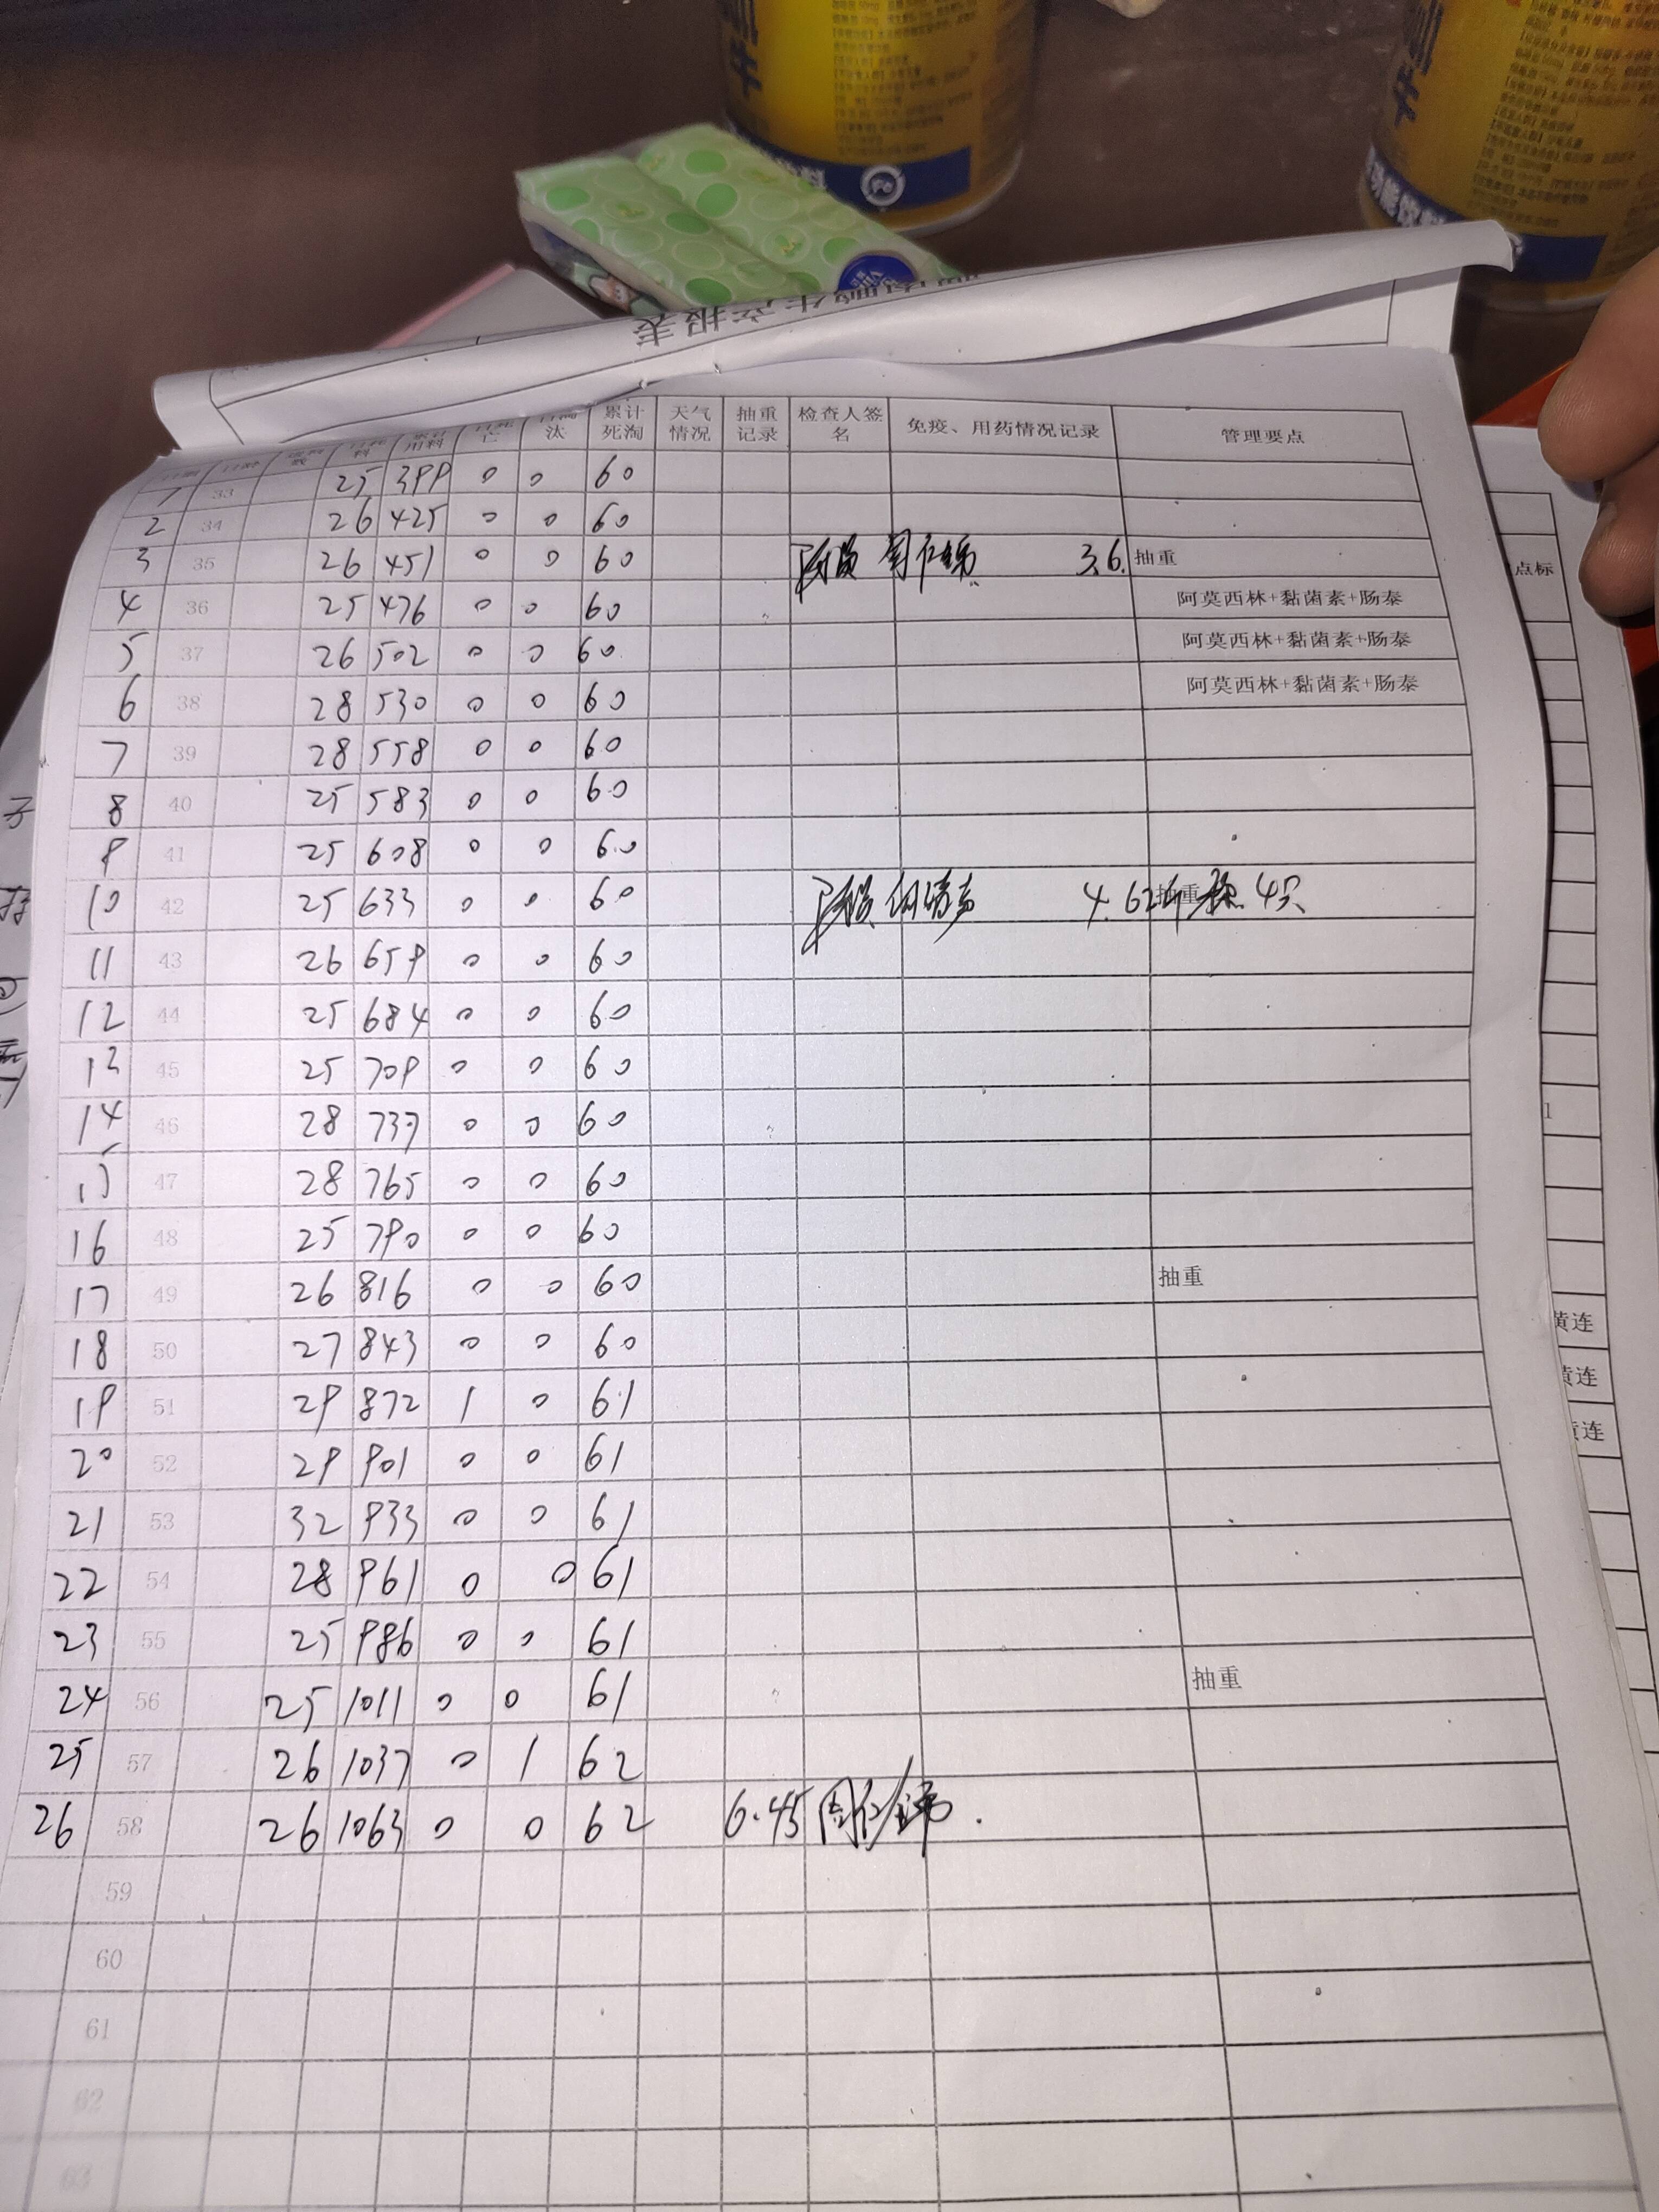 牛
牛
报表
日龄
用料
亡
汰
累计死淘
天气情况
抽重记录
检查人签名
免疫、用药情况记录
管理要点
1 33 25 399 0 0 60
2 34 26 425 0 0 60
3 35 26 451 0 0 60 3.6. 抽重
4 36 25 476 0 0 60 阿莫西林+黏菌素+肠泰
5 37 26 502 0 0 60 阿莫西林+黏菌素+肠泰
6 38 28 530 0 0 60 阿莫西林+黏菌素+肠泰
7 39 28 558 0 0 60
8 40 25 583 0 0 60
9 41 25 608 0 0 60
10 42 25 633 0 0 60 4.62斤 抽重 4只
11 43 26 659 0 0 60
12 44 25 684 0 0 60
13 45 25 709 0 0 60
14 46 28 737 0 0 60
15 47 28 765 0 0 60
16 48 25 790 0 0 60
17 49 26 816 0 0 60 抽重
18 50 27 843 0 0 60
19 51 29 872 1 0 61
20 52 29 901 0 0 61
21 53 32 933 0 0 61
22 54 28 961 0 0 61
23 55 25 986 0 0 61
24 56 25 1011 0 0 61 抽重
25 57 26 1037 0 1 62
26 58 26 1063 0 0 62 6.45
59
60
61
62
63
点标
1
黄连
黄连
连